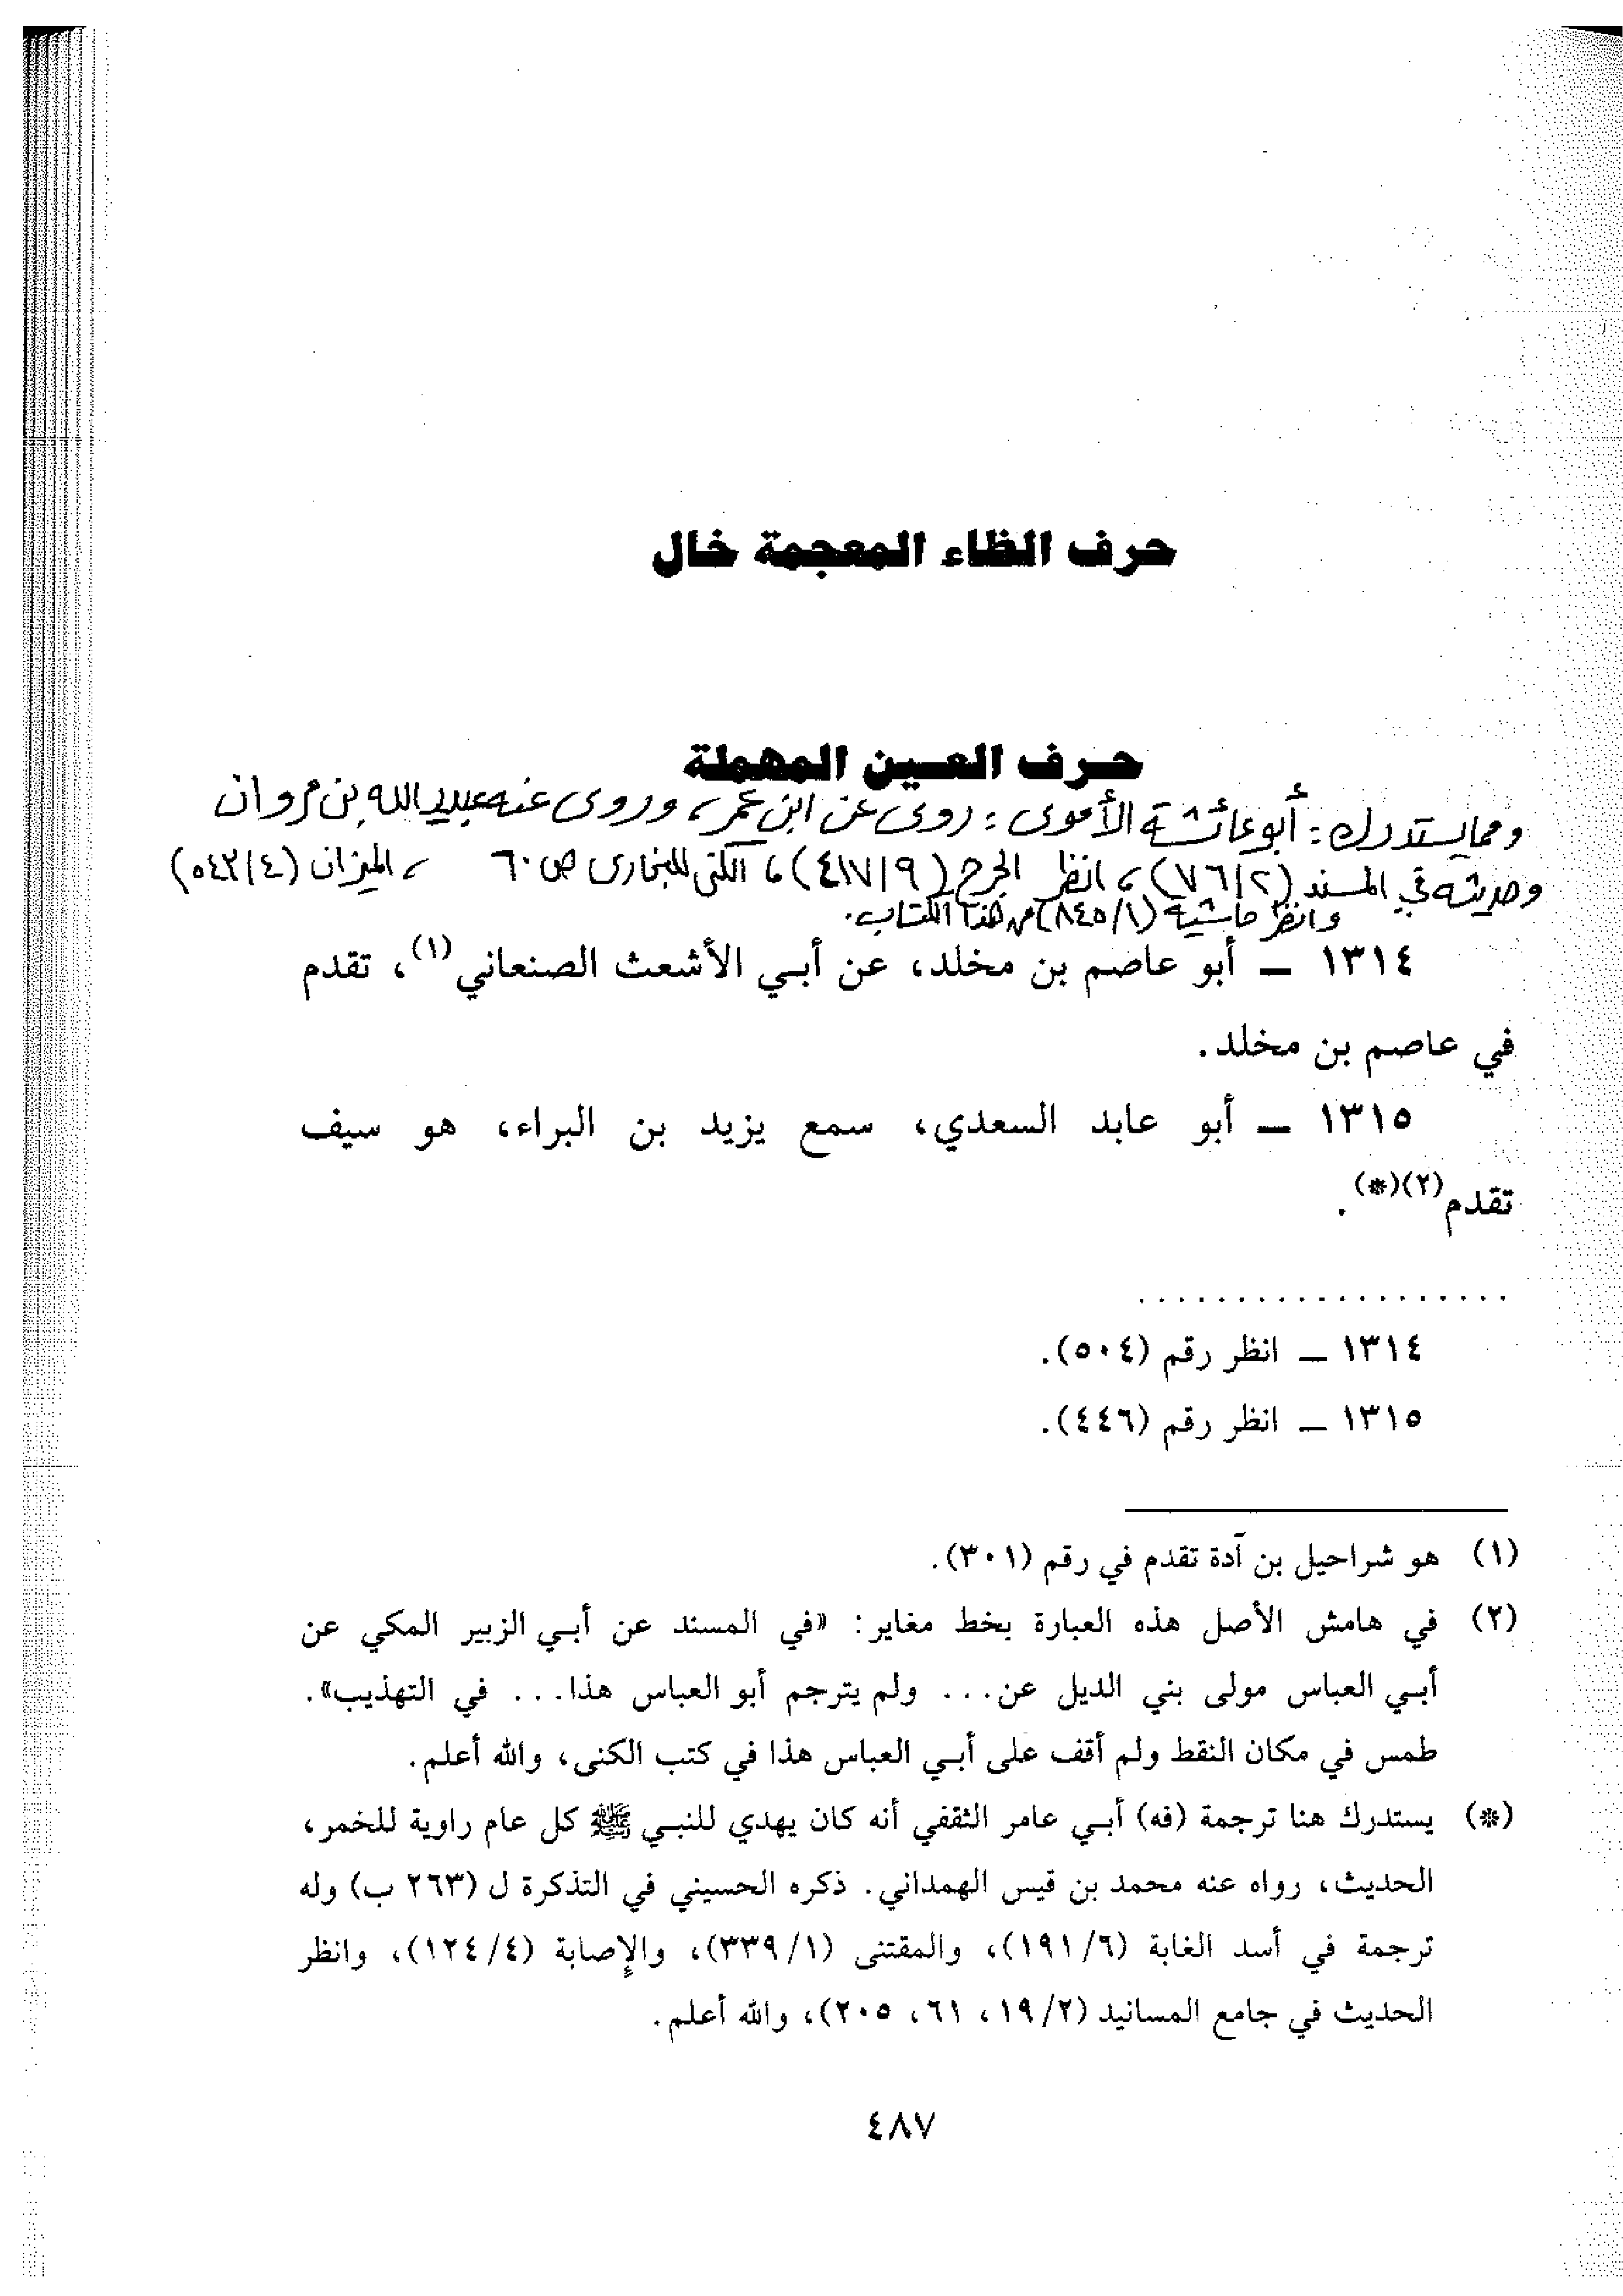 حرف الظاء المعجمة خال
حرف العين المهملة
ومما يستدرك : أبو عائشة الأموى : روى عن ابن عمر ، وروى عنه عبيد الله بن مروان
وحديثه في المسند (٧٦/٢) ، انظر الجرح (٤١٧/٩) ، الكنى للبخارى ص ٦٠ ، الميزان (٥٤٢/٤)
وانظر حاشية (٨٤٥/١) من هذا الكتاب .
١٣١٤ ــ أبو عاصم بن مخلد، عن أبي الأشعث الصنعاني(١)، تقدم
في عاصم بن مخلد.
١٣١٥ ــ أبو عابد السعدي، سمع يزيد بن البراء، هو سيف
تقدم(٢)(*).
. . . . . . . . . . . . . . . . . . .
١٣١٤ ــ انظر رقم (٥٠٤).
١٣١٥ ــ انظر رقم (٤٤٦).
(١) هو شراحيل بن آدة تقدم في رقم (٣٠١).
(٢) في هامش الأصل هذه العبارة بخط مغاير: «في المسند عن أبي الزبير المكي عن
أبي العباس مولى بني الديل عن... ولم يترجم أبو العباس هذا... في التهذيب».
طمس في مكان النقط ولم أقف على أبي العباس هذا في كتب الكنى، والله أعلم.
(*) يستدرك هنا ترجمة (فه) أبي عامر الثقفي أنه كان يهدي للنبي ﷺ كل عام راوية للخمر،
الحديث، رواه عنه محمد بن قيس الهمداني. ذكره الحسيني في التذكرة ل (٢٦٣ ب) وله
ترجمة في أسد الغابة (١٩١/٦)، والمقتنى (٣٣٩/١)، والإصابة (١٢٤/٤)، وانظر
الحديث في جامع المسانيد (١٩/٢، ٦١، ٢٠٥)، والله أعلم.
٤٨٧